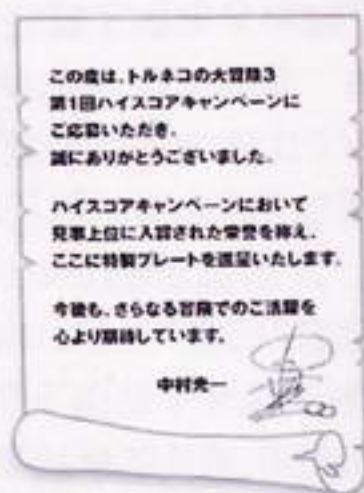 この度は、トルネコの大冒険3
第1回ハイスコアキャンペーンに
ご応募いただき、
誠にありがとうございました。
ハイスコアキャンペーンにおいて
見事上位に入賞された栄誉を称え、
ここに特製プレートを進呈いたします。
今後も、さらなる冒険でのご活躍を
心より期待しています。
中村光一